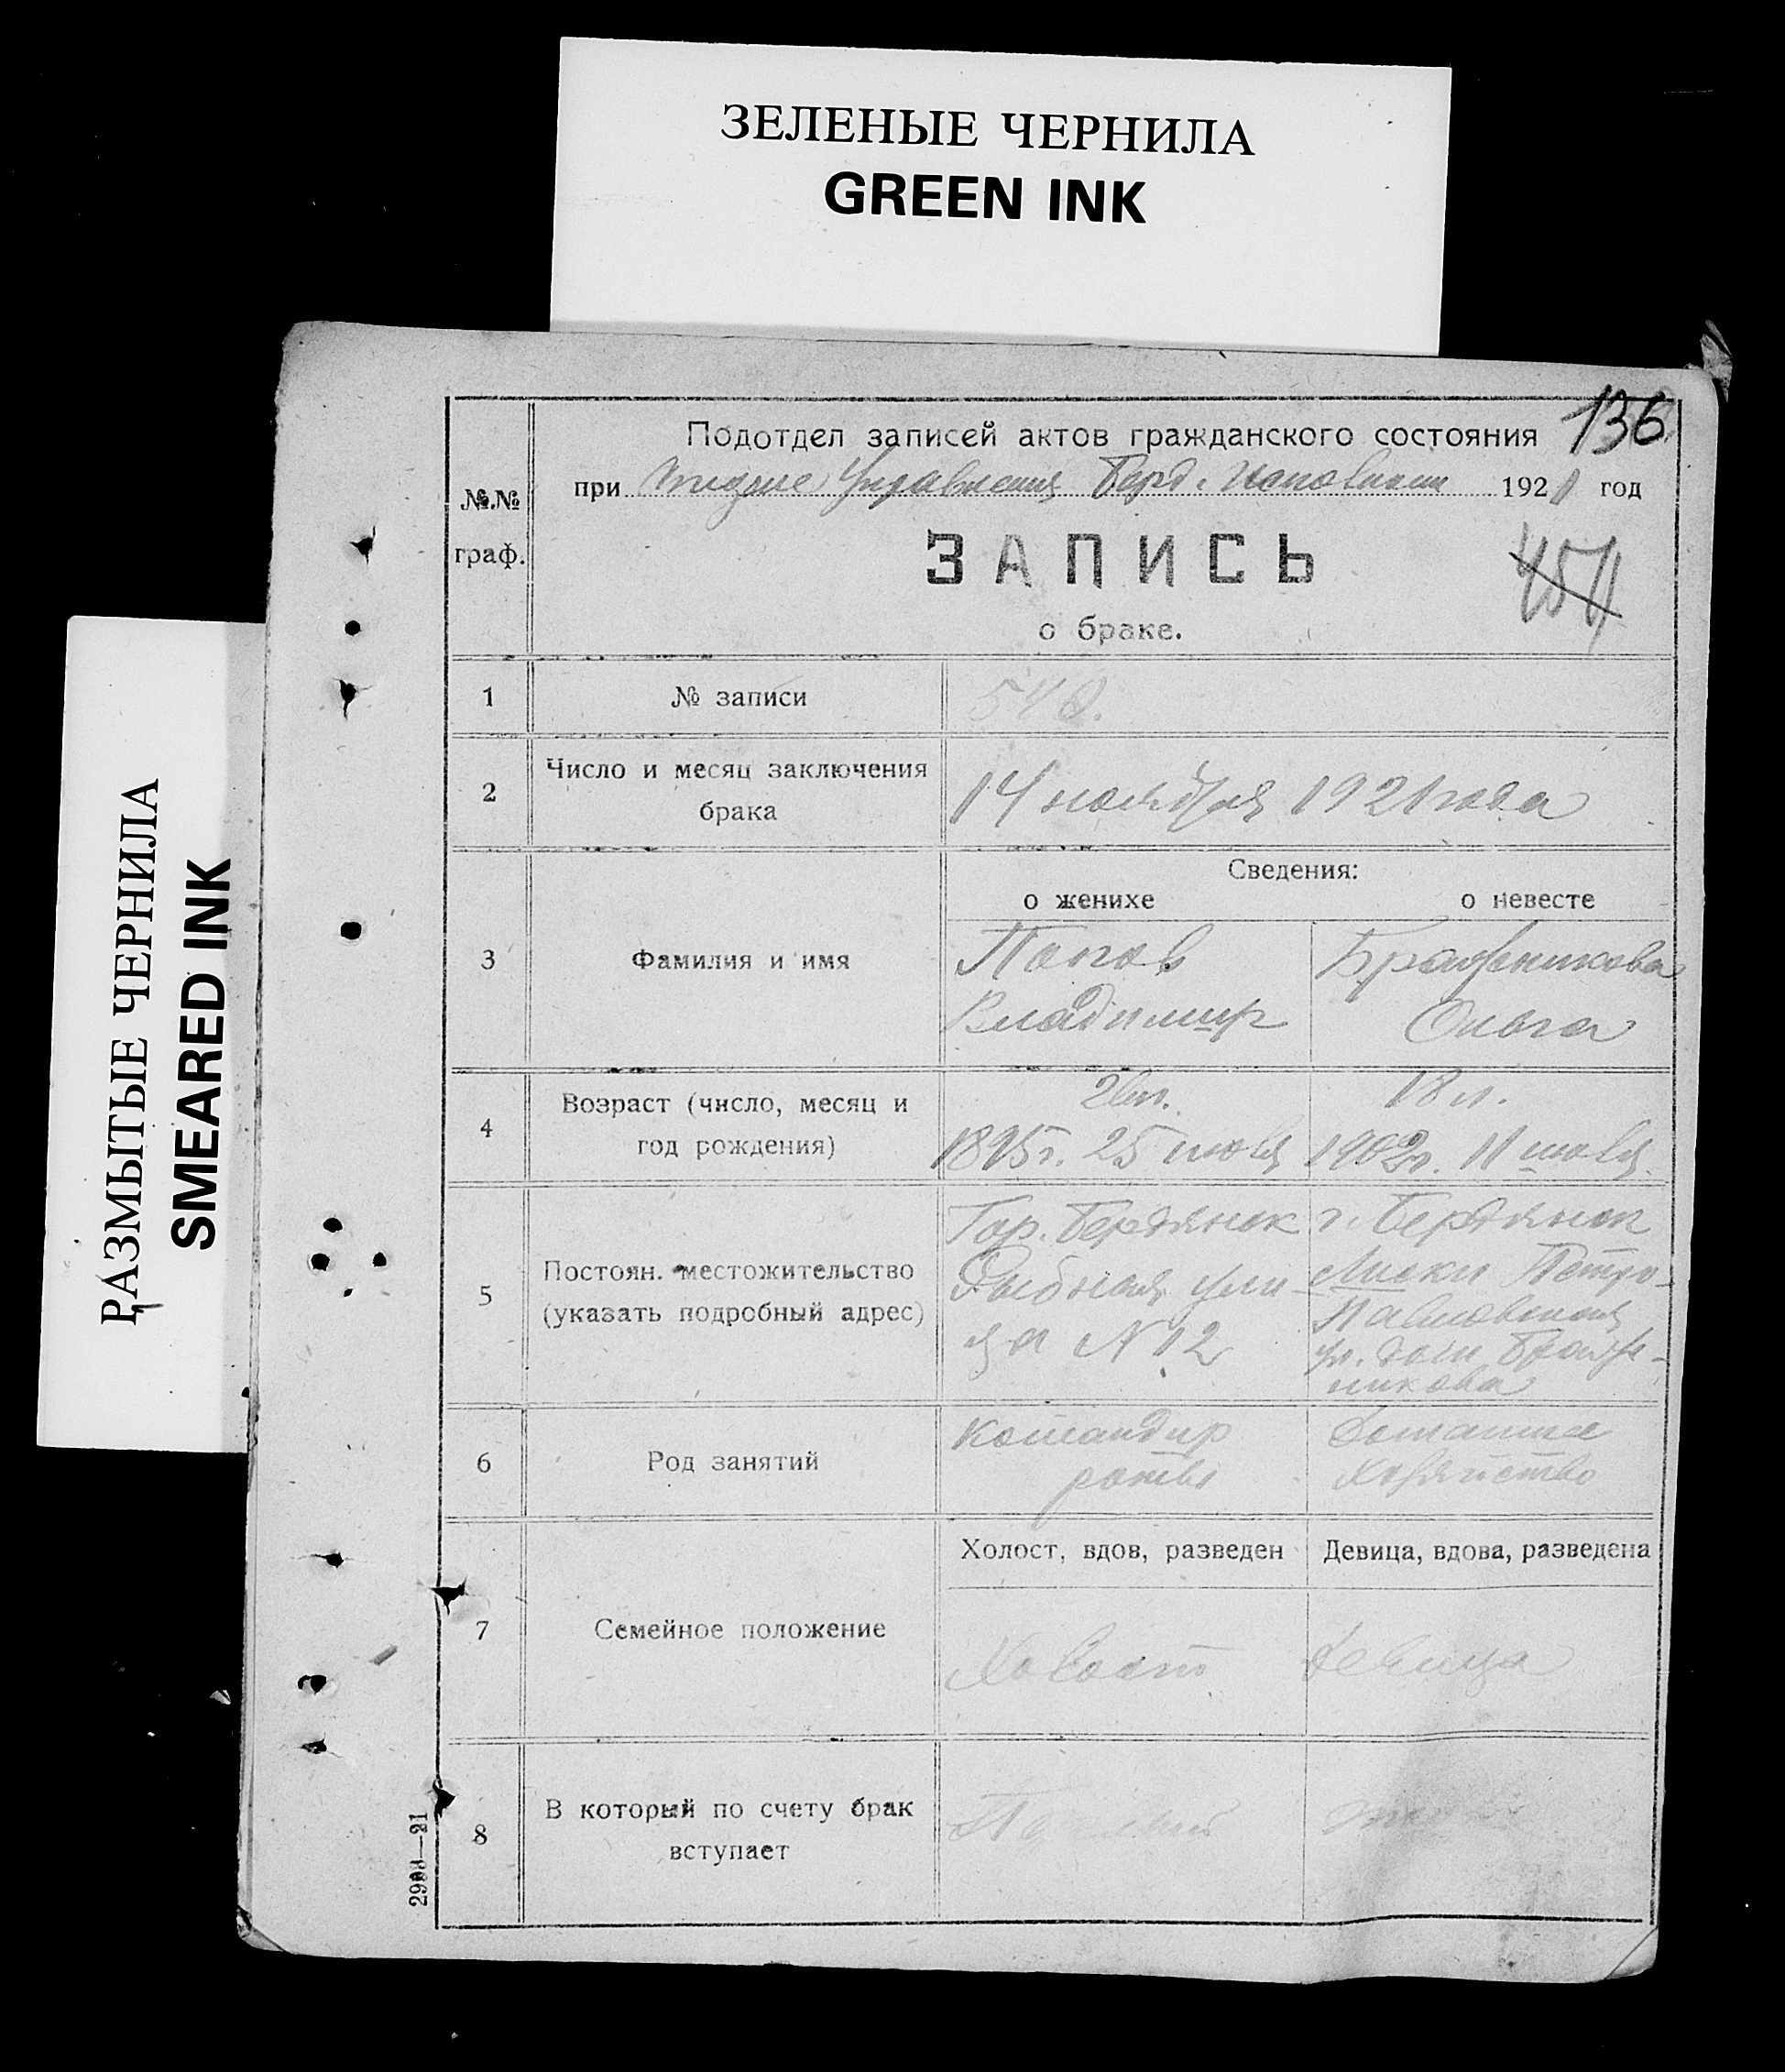 ЗЕЛЕНЫЕ ЧЕРНИЛА
GREEN INK
РАЗМЫТЫЕ ЧЕРНИЛА
SMEARED INK
136
Подотдел записей актов гражданского состояния
при Отделе Управления Берд. Исполкома 1921 год
№№
граф.
ЗАПИСЬ
454
о браке.
1 № записи 540.
2 Число и месяц заключения
брака
14 ноября 1921 года
Сведения:
о женихе о невесте
3 Фамилия и имя
Попов Бражникова
Владимир Ольга
4 Возраст (число, месяц и
год рождения)
26 л. 18 л.
1895 г. 25 июля 11 июля
5 Постоян. местожительство
(указать подробный адрес)
Гор. Бердянск г. Бердянск
Рыбная ули- Лиски Петро-
ца № 12 Павловская
ул. дом Браж-
никова
6 Род занятий
Командир Домашнее
роты хозяйство
7 Семейное положение
Холост, вдов, разведен Девица, вдова, разведена
Холост девица
8 В который по счету брак
вступает
Первый
2908—21